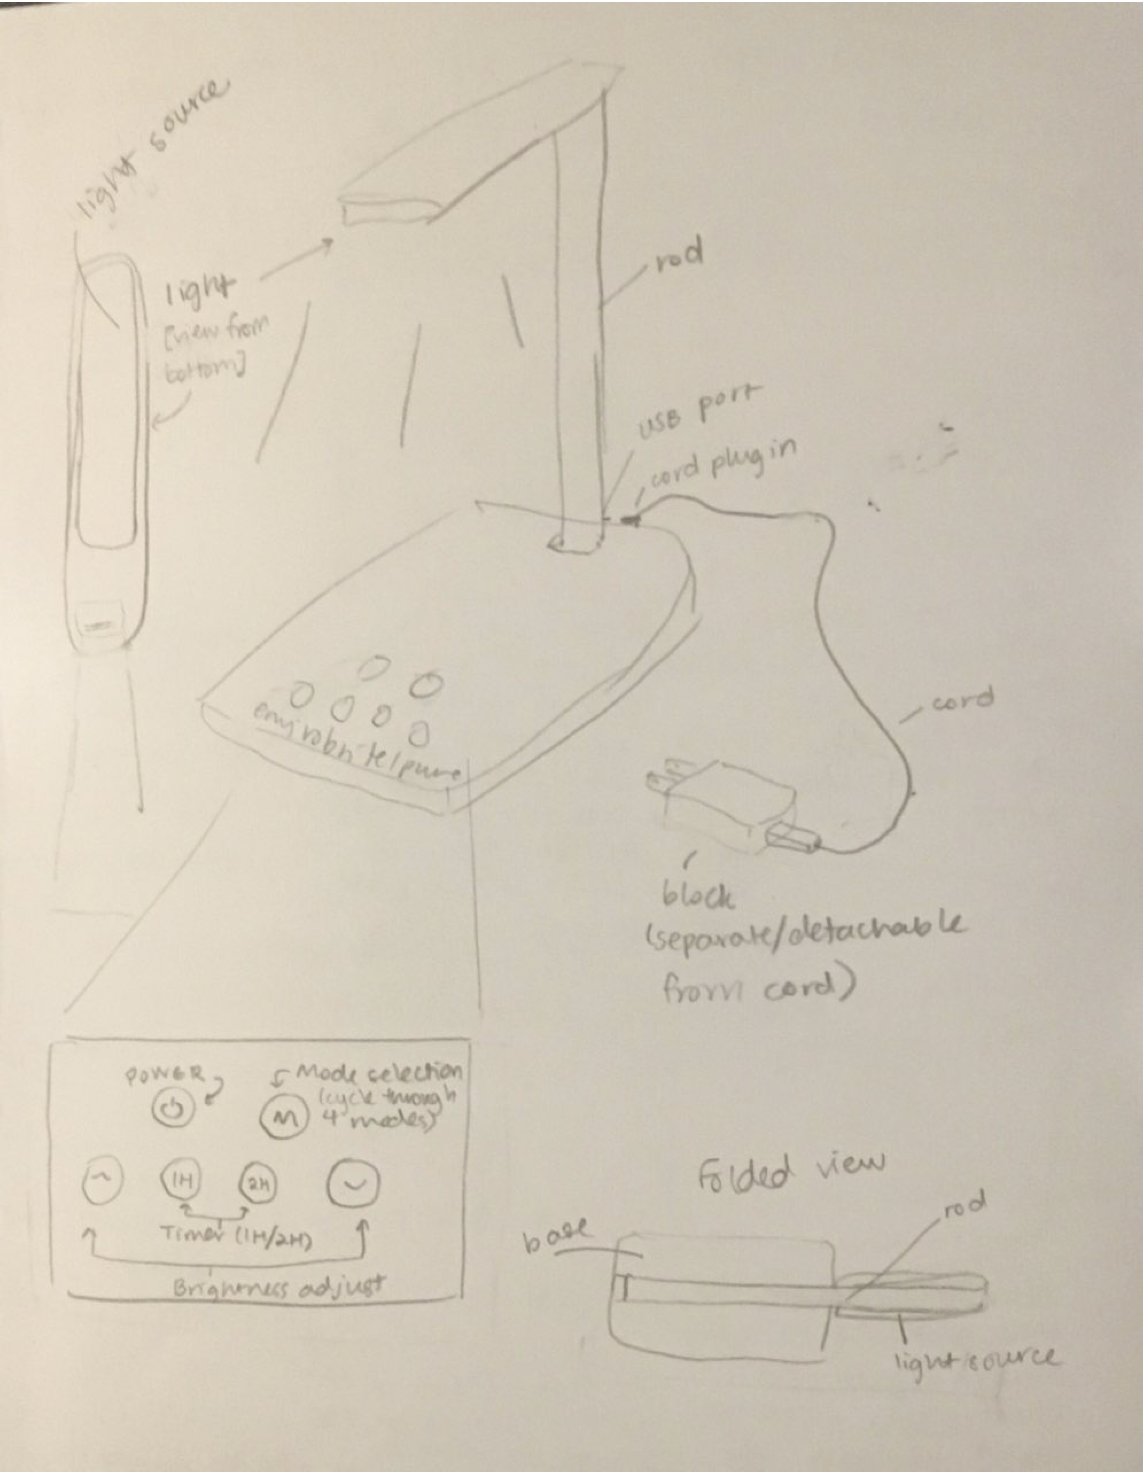 light source
light
[view from
bottom]
rod
USB port
cord plug in
cord
envirobrite/pure
block
(separate/detachable
from cord)
POWER
Mode selection
(cycle through
4 modes)
M
1H
2H
Timer (1H/2H)
Brightness adjust
Folded view
base
rod
light source